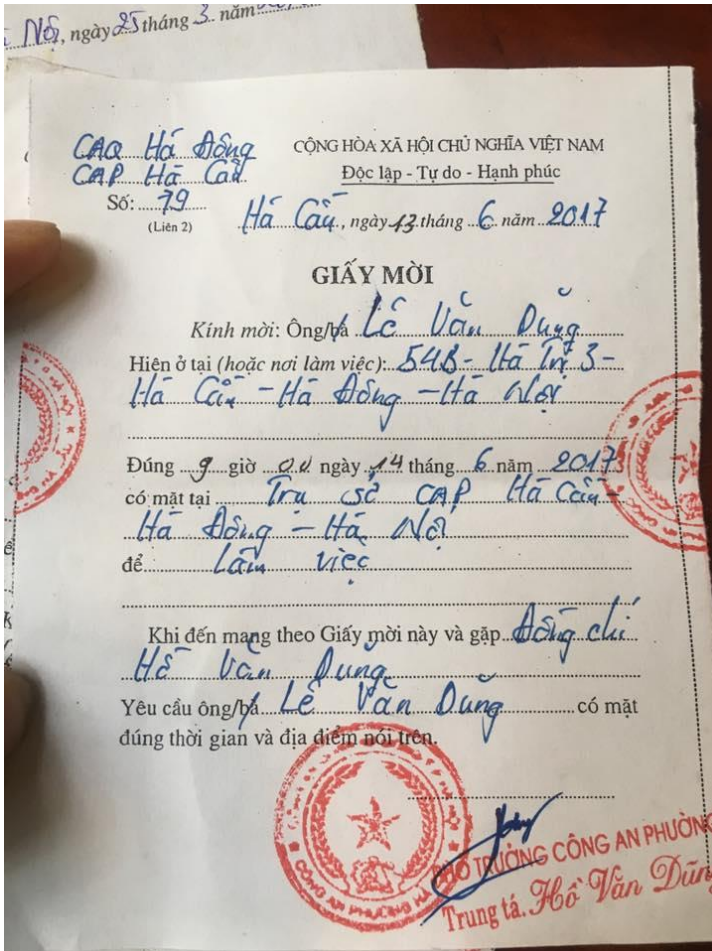 Nội, ngày 25 tháng 3. năm
CAQ Hà Đông
CỘNG HÒA XÃ HỘI CHỦ NGHĨA VIỆT NAM
CAP Hà Cầu
Độc lập - Tự do - Hạnh phúc
Số: 79
(Liên 2)
Hà Cầu, ngày 13 tháng 6 năm 2017
GIẤY MỜI
Kính mời: Ông/bà Lê Văn Dũng
Hiện ở tại (hoặc nơi làm việc): 54B - Hà Trì 3 -
Hà Cầu - Hà Đông - Hà Nội
Đúng 9 giờ 00 ngày 14 tháng 6 năm 2017
có mặt tại Trụ sở CAP Hà Cầu -
Hà Đông - Hà Nội
để làm việc
Khi đến mang theo Giấy mời này và gặp Đồng chí
Hồ Văn Dũng
Yêu cầu ông/bà Lê Văn Dũng có mặt
đúng thời gian và địa điểm nói trên.
PHÓ TRƯỞNG CÔNG AN PHƯỜNG
CÔNG AN PHƯỜNG HÀ
Trung tá. Hồ Văn Dũng